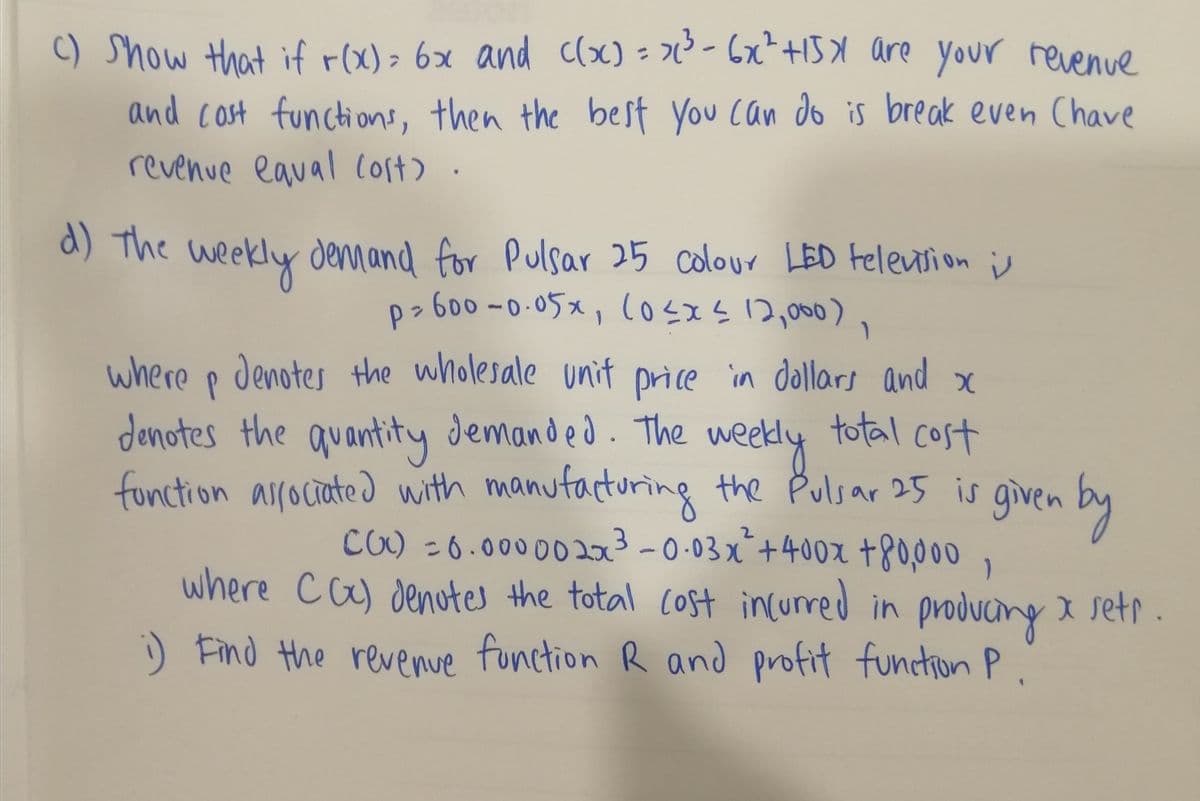 c) Show that if r(x) = 6x and c(x) = x³ - 6x² +15x are your revenue
and cost functions, then the best you can do is break even (have
revenue equal cost) .
d) The weekly demand for Pulsar 25 colour LED television is
p = 600 - 0.05x, (0 ≤ x ≤ 12,000),
where p denotes the wholesale unit price in dollars and x
denotes the quantity demanded. The weekly total cost
function associated with manufacturing the Pulsar 25 is given by
C(x) = 0.000002x³ - 0.03x² + 400x + 80,000 ,
where C(x) denotes the total cost incurred in producing x sets.
i) Find the revenue function R and profit function P.